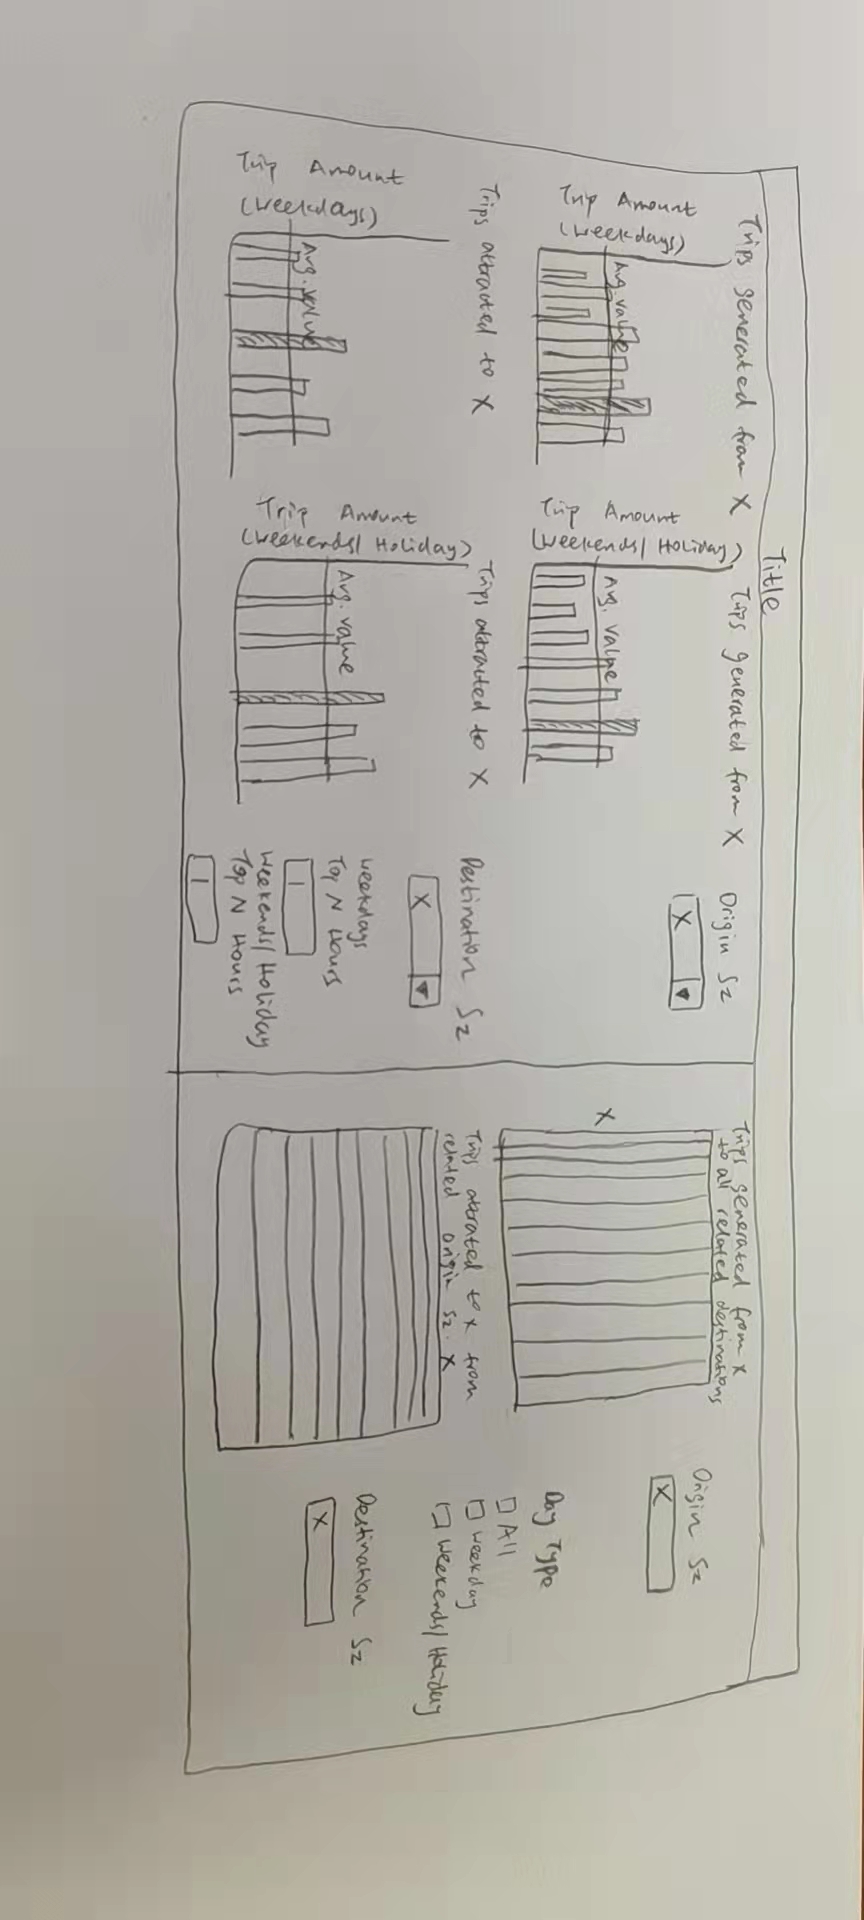 Title
Trips generated from X
Trip Amount
(weekdays)
Avg. value
Trips generated from X
Trip Amount
(weekends/ Holiday)
Avg. value
Origin Sz
X
Trips attracted to X
Trip Amount
(weekdays)
Avg. value
Trips attracted to X
Trip Amount
(weekends/ Holiday)
Avg. value
Destination Sz
X
weekdays
Top N Hours
1
weekends/ Holiday
Top N Hours
1
Trips generated from x
to all related destinations
X
Origin Sz
X
Day Type
All
weekday
weekends/ Holiday
Trips attrated to x from
related origin sz. X
Destination Sz
X